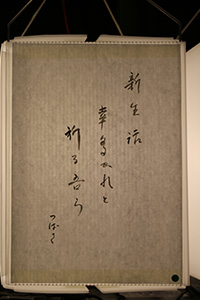 新生活
幸多かれと
祈る吾ら
つばく